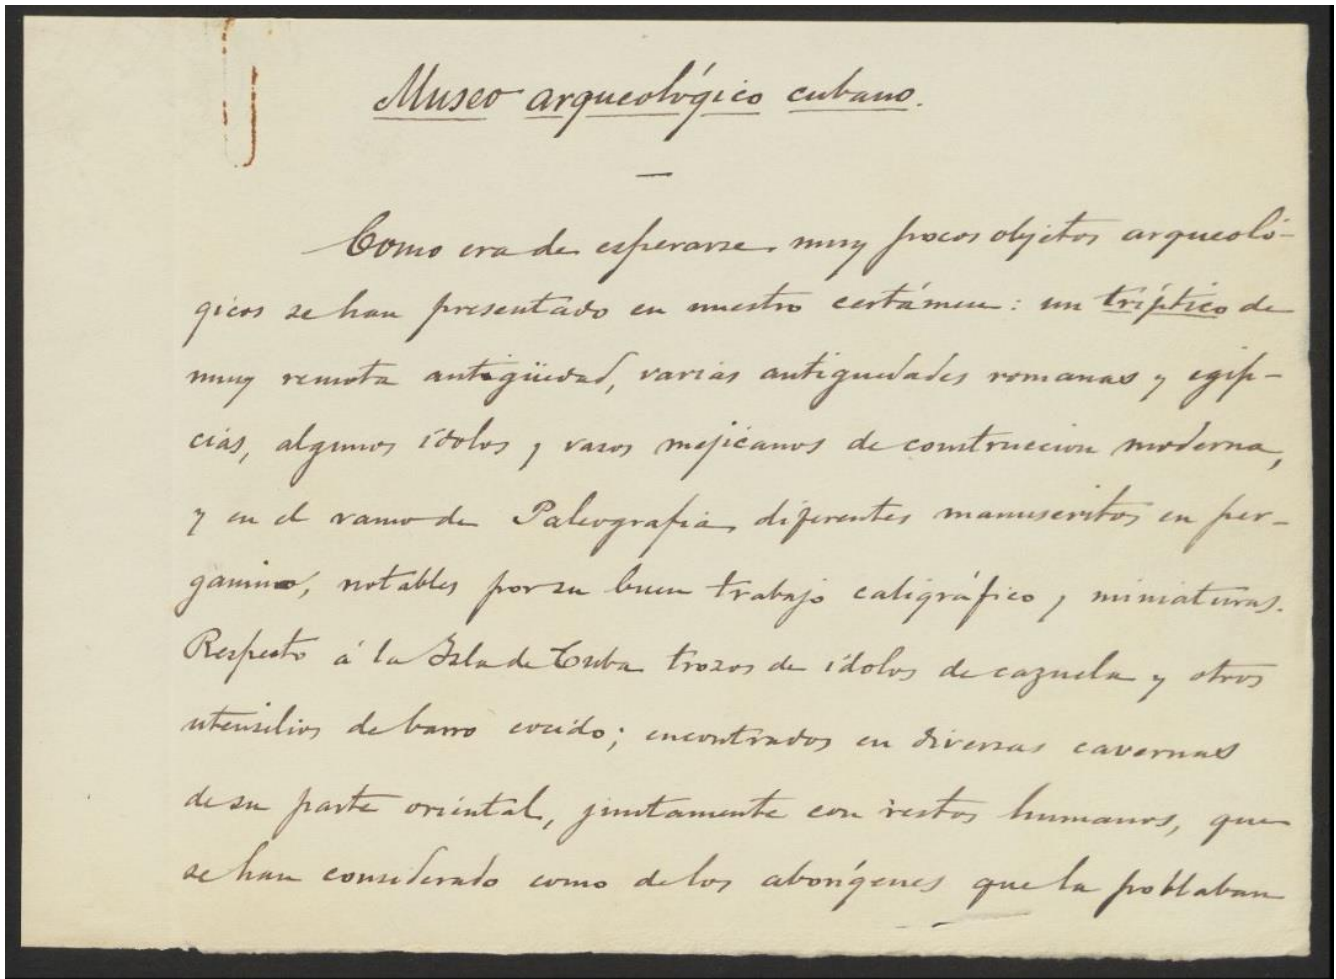 Museo arqueológico cubano.
Como era de esperarse muy pocos objetos arqueoló-
gicos se han presentado en nuestro certámen: un tríptico de
muy remota antigüedad, varias antiguedades romanas y egip-
cias, algunos ídolos y vasos mejicanos de construccion moderna,
y en el ramo de Paleografia, diferentes manuscritos en per-
gamino, notables por su buen trabajo caligráfico y miniaturas.
Respecto á la Isla de Cuba trozos de ídolos de cazuela y otros
utensilios de barro cocido; encontrados en diversas cavernas
de su parte oriental, juntamente con restos humanos, que
se han considerado como de los aborígenes que la poblaban